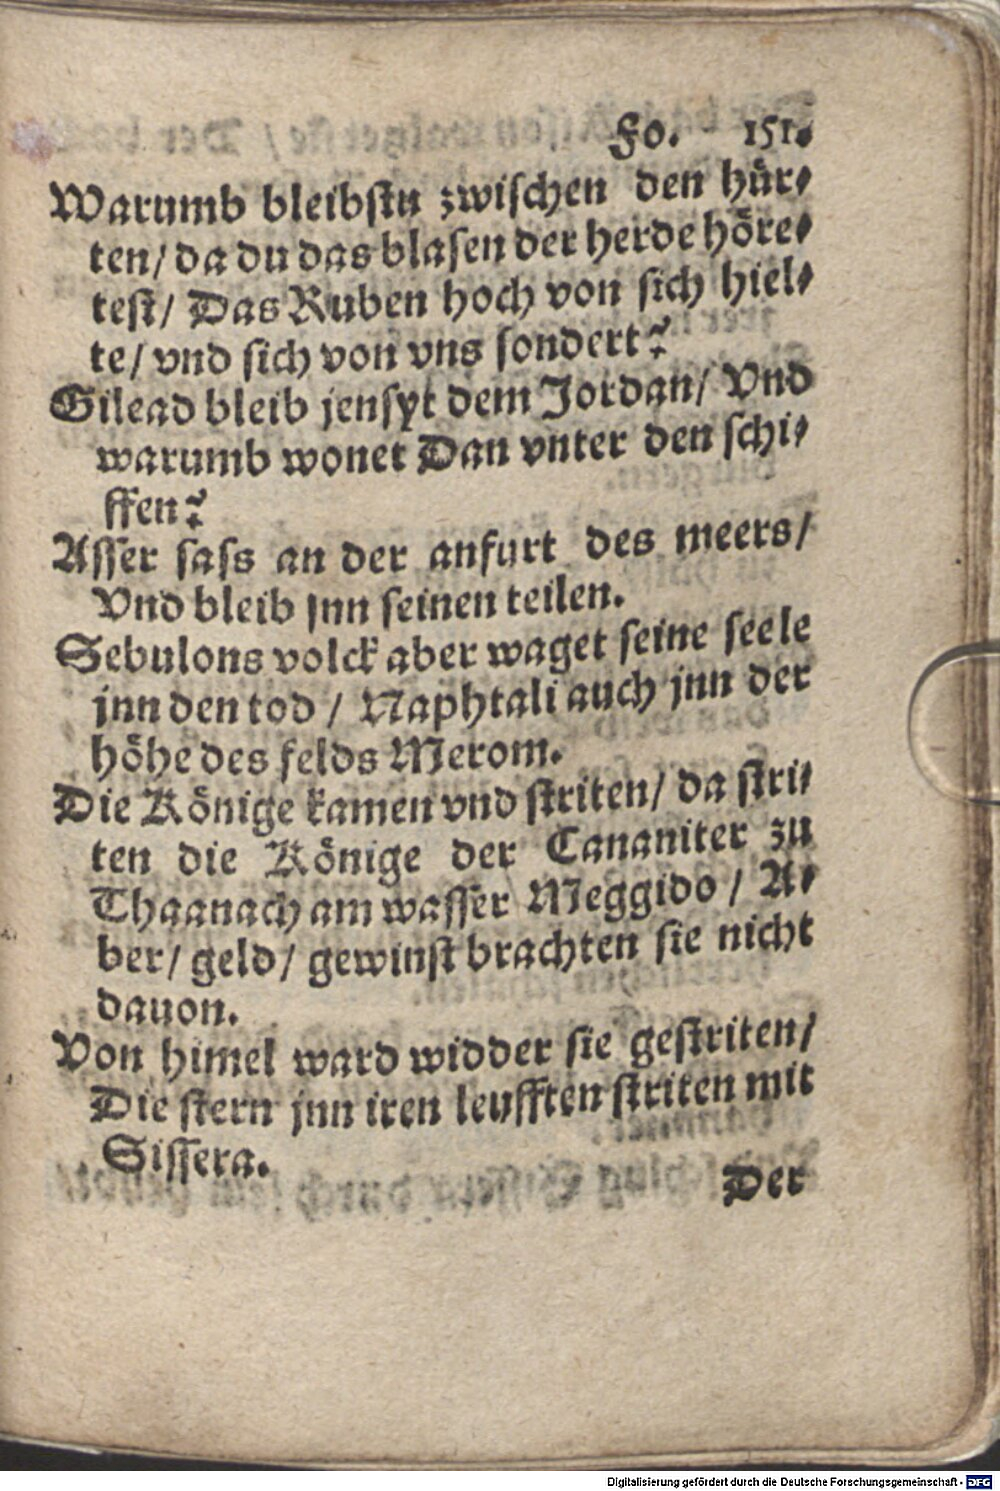 Fo. 151.
Warumb bleibstu zwischen den hür⸗
ten/ da du das blasen der herde höre⸗
test/ Das Ruben hoch von sich hiel⸗
te/ vnd sich von vns sondert?
Gilead bleib jensyt dem Jordan/ Vnd
warumb wonet Dan vnter den schi⸗
ffen?
Asser sass an der anfurt des meers/
Vnd bleib jnn seinen teilen.
Sebulons volck aber waget seine seele
jnn den tod / Naphtali auch jnn der
höhe des felds Merom.
Die Könige kamen vnd striten/ da stri⸗
ten die Könige der Cananiter zu
Thaanach am wasser Meggido / A⸗
ber/ geld/ gewinst brachten sie nicht
dauon.
Von himel ward widder sie gestriten/
Die stern jnn iren leufften striten mit
Sissera.
Der
Digitalisierung gefördert durch die Deutsche Forschungsgemeinschaft - DFG